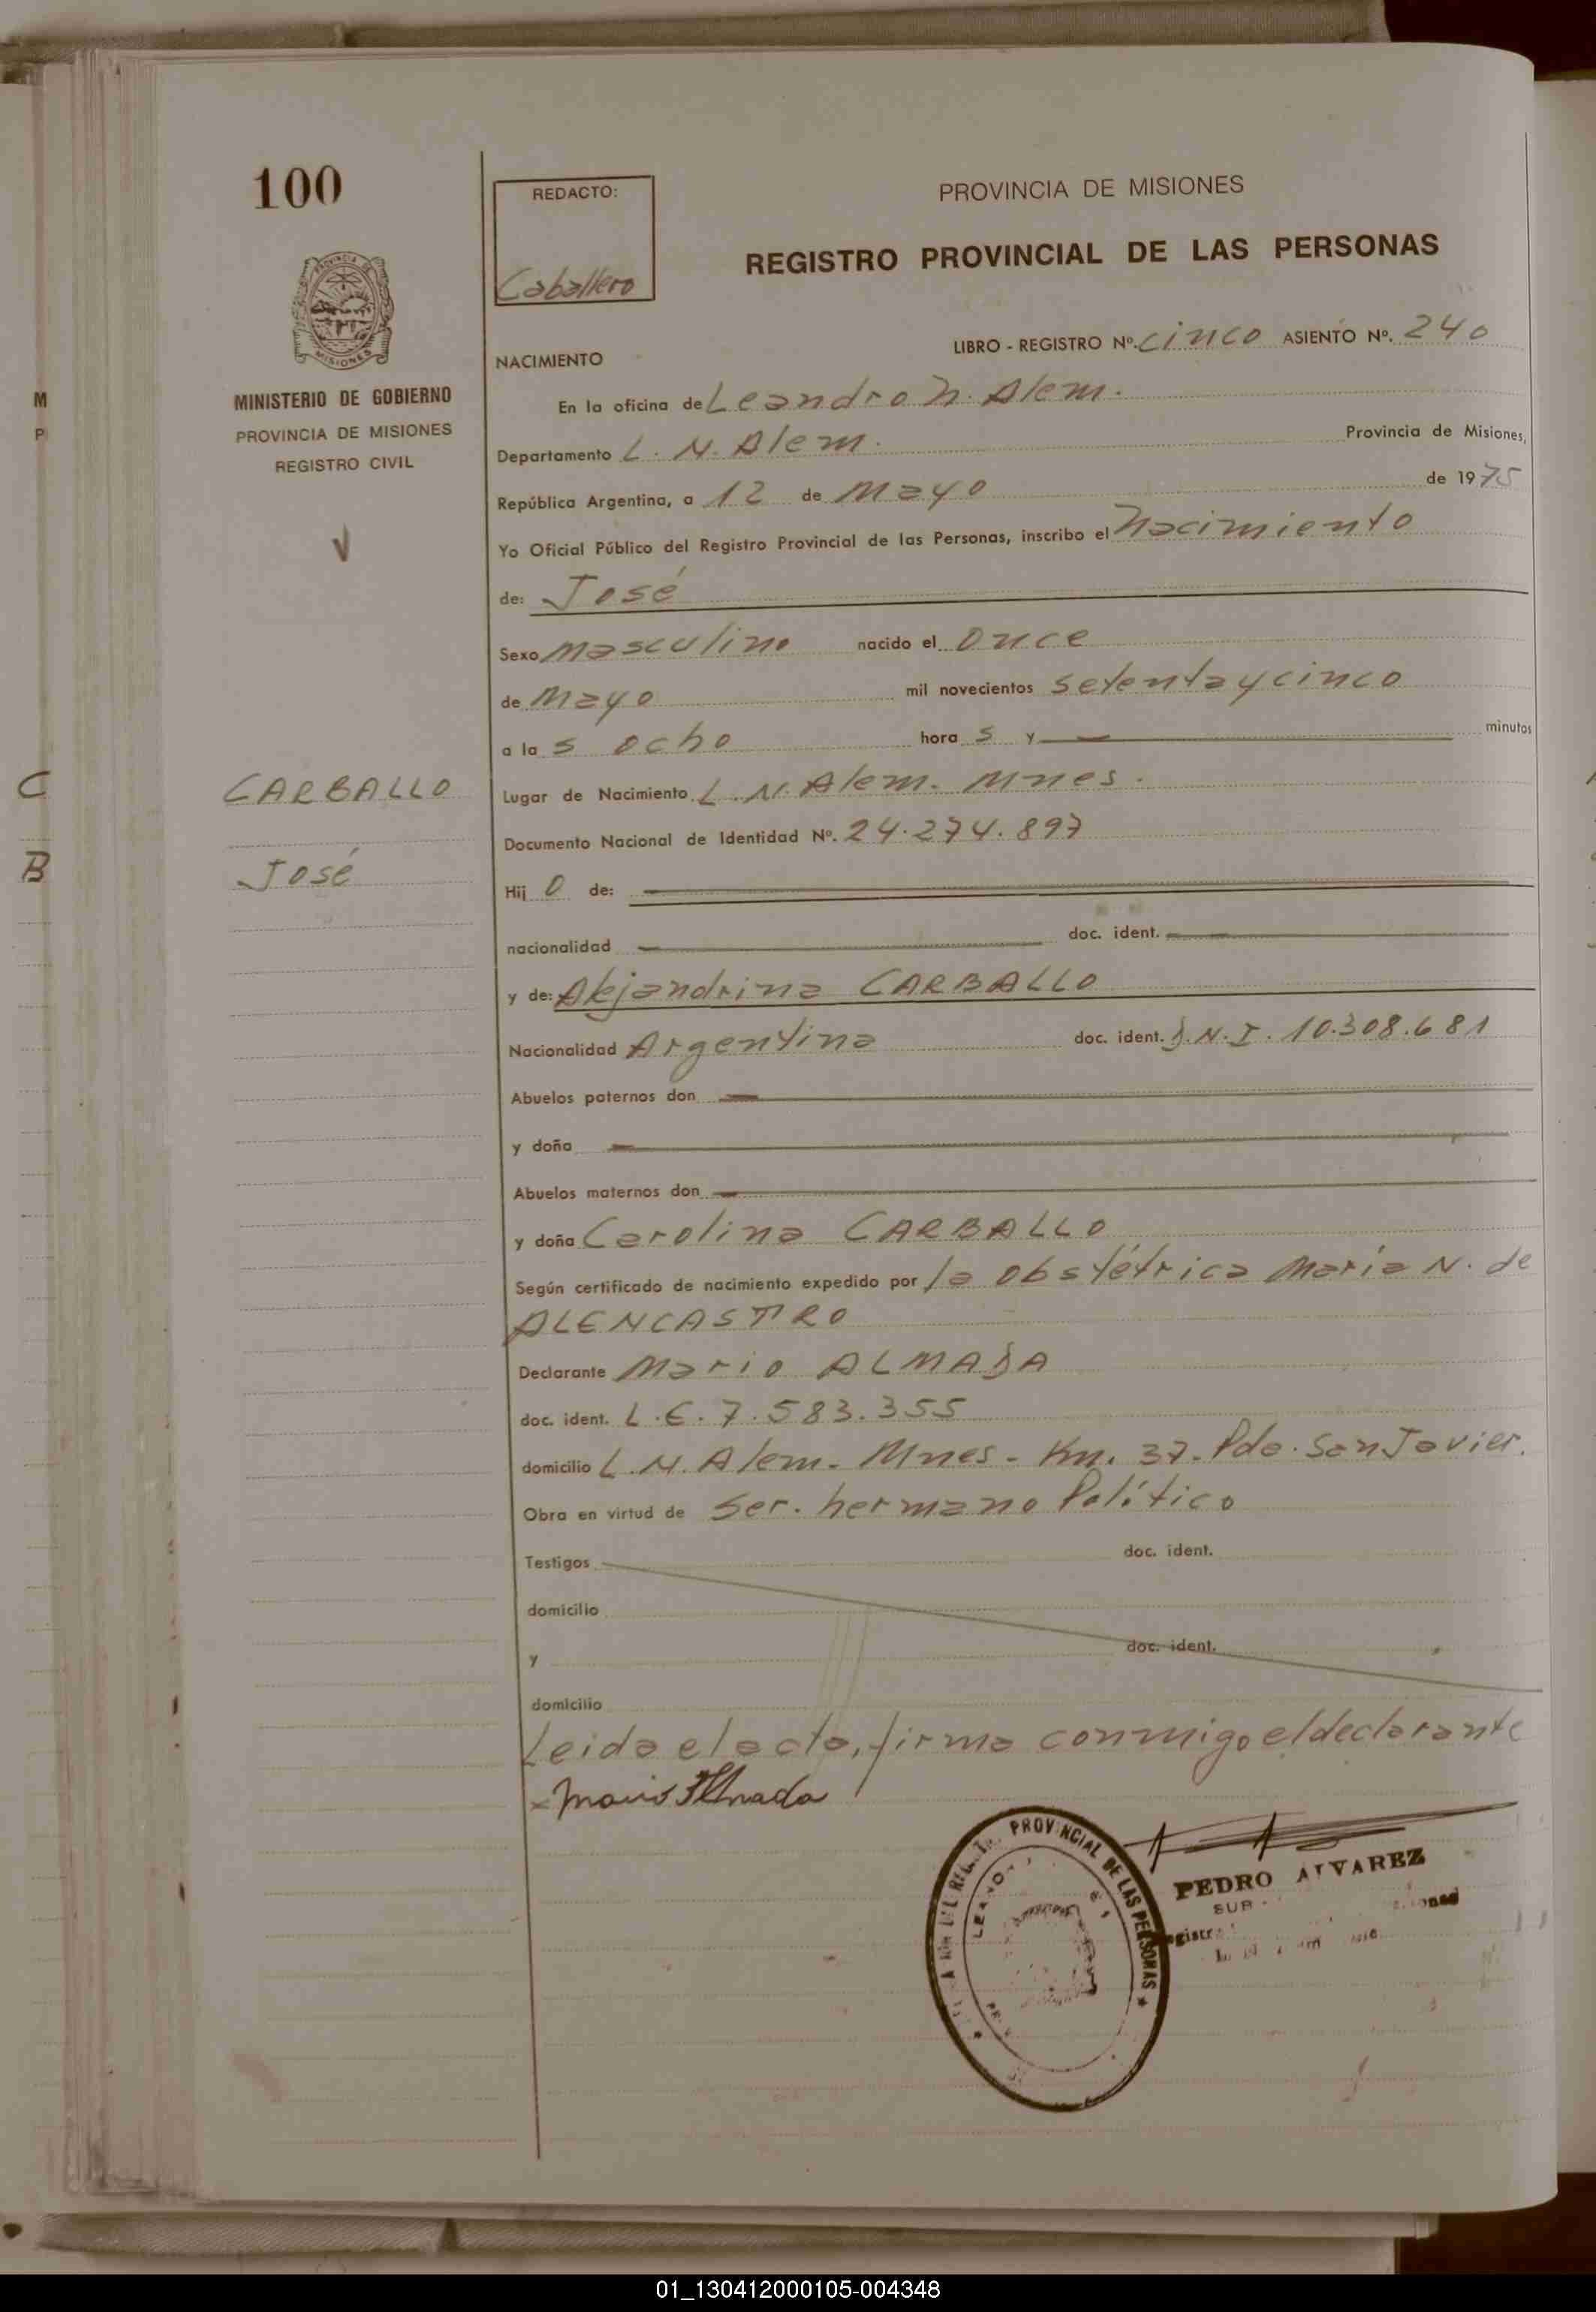 100
REDACTO:
Caballero
PROVINCIA DE MISIONES
REGISTRO PROVINCIAL DE LAS PERSONAS
MISIONES
MINISTERIO DE GOBIERNO
PROVINCIA DE MISIONES
REGISTRO CIVIL
M
P
NACIMIENTO
LIBRO - REGISTRO Nº. cinco ASIENTO Nº. 240
En la oficina de Leandro N. Alem.
Departamento L. N. Alem. Provincia de Misiones,
República Argentina, a 12 de Mayo de 1975
Yo Oficial Público del Registro Provincial de las Personas, inscribo el Nacimiento
de: José
Sexo Masculino nacido el Once
de Mayo mil novecientos setenta y cinco
a la s ocho hora s y — minutos
C
CARBALLO
Lugar de Nacimiento L. N. Alem. Mnes.
Documento Nacional de Identidad Nº. 24.274.897
B
José
Hij o de: —
nacionalidad — doc. ident. —
y de: Alejandrina CARBALLO
Nacionalidad Argentina doc. ident. D.N.I. 10.308.681
Abuelos paternos don —
y doña —
Abuelos maternos don —
y doña Carolina CARBALLO
Según certificado de nacimiento expedido por la obstétrica María N. de
ALENCASTRO
Declarante Mario ALMADA
doc. ident. L.E. 7.583.355
domicilio L.N. Alem. Mnes - Km. 37. Pdo. San Javier.
Obra en virtud de ser. hermano Político
Testigos doc. ident.
domicilio
y doc. ident.
domicilio
Leida el acta, firma conmigo el declarante
x Mario Almada
PROVINCIAL DE LAS PERSONAS
PEDRO ALVAREZ
SUB
01_130412000105-004348